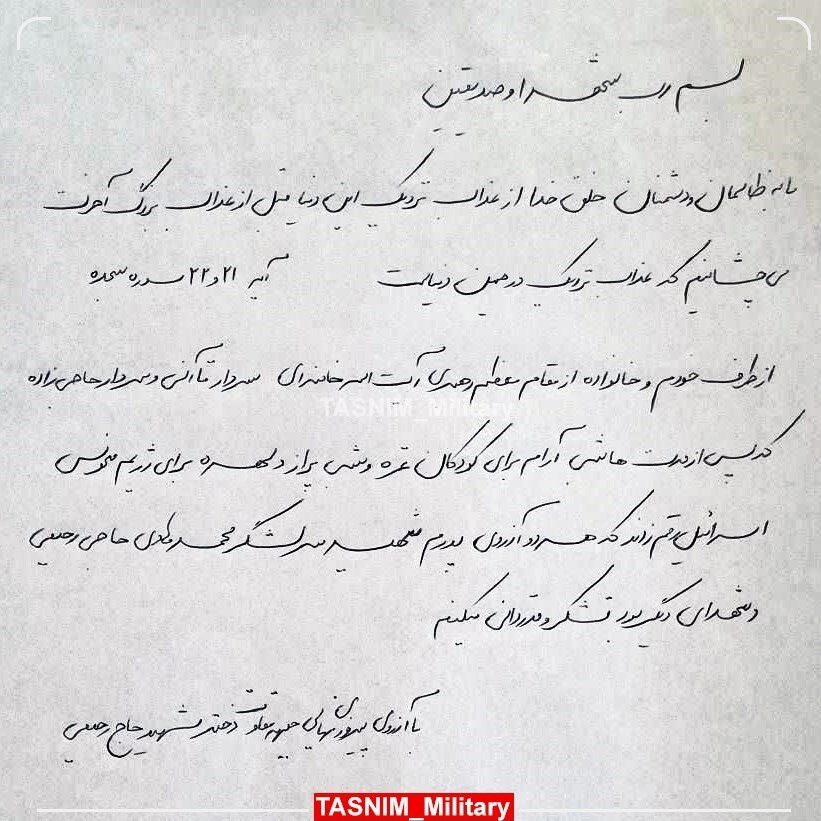 بسم رب شهدا و صدیقین
ما به ظالمان و دشمنان خلق خدا از عذاب نزدیک این دنیا قبل از عذاب بزرگ آخرت
می چشانیم که عذاب نزدیک در همین دنیاست آیه ۲۱ و ۲۲ سوره سجده
از طرف خودم و خانواده از مقام معظم رهبری آیت اله خامنه‌ای سردار قاآنی و سردار حاجی زاده
TASNIM_Military
که پس از مدت ها شبی آرام برای کودکان غزه و شبی پر از دلهره برای رژیم منحوس
اسرائیل رقم زدند که هر دو آرزوی پدرم شهید سرلشگر محمد هادی حاجی رحیمی
و شهدای دیگر بود تشکر و قدردانی میکنیم
با آرزوی پیروزی نهایی جبهه مقاومت دختر شهید حاج رحیمی
TASNIM_Military